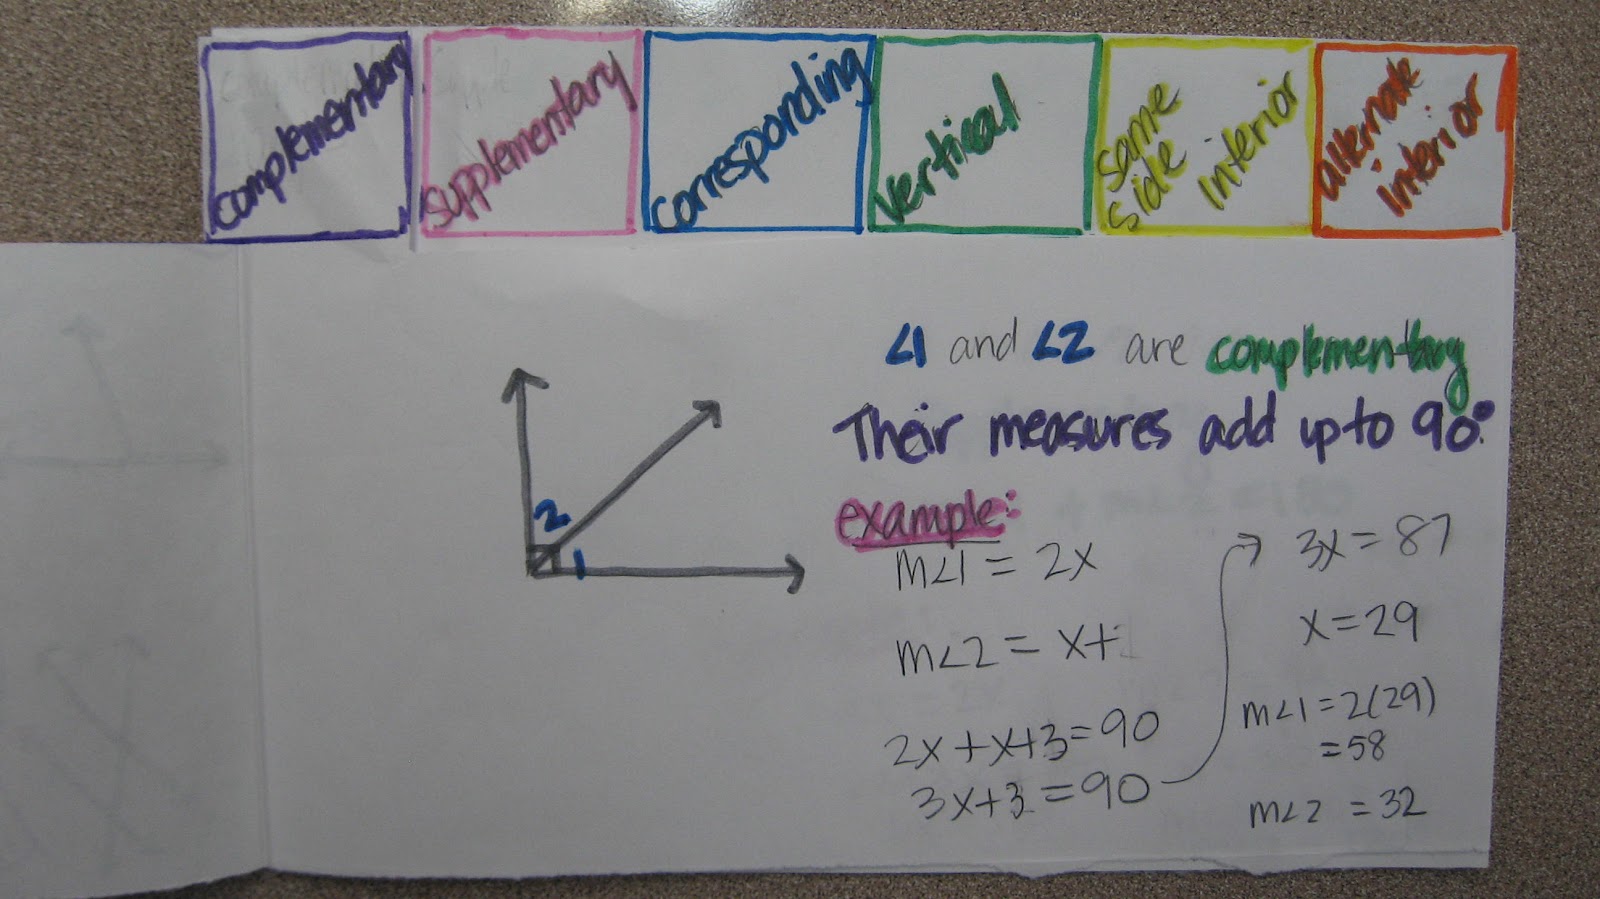 complementary
supplementary
corresponding
vertical
same
side
interior
alternate
interior
∠1 and ∠2 are complementary
Their measures add up to 90°.
example:
m∠1 = 2x
m∠2 = x+
2x+x+3=90
3x+3=90
3x=87
x=29
m∠1=2(29)
=58
m∠2 =32
2
1